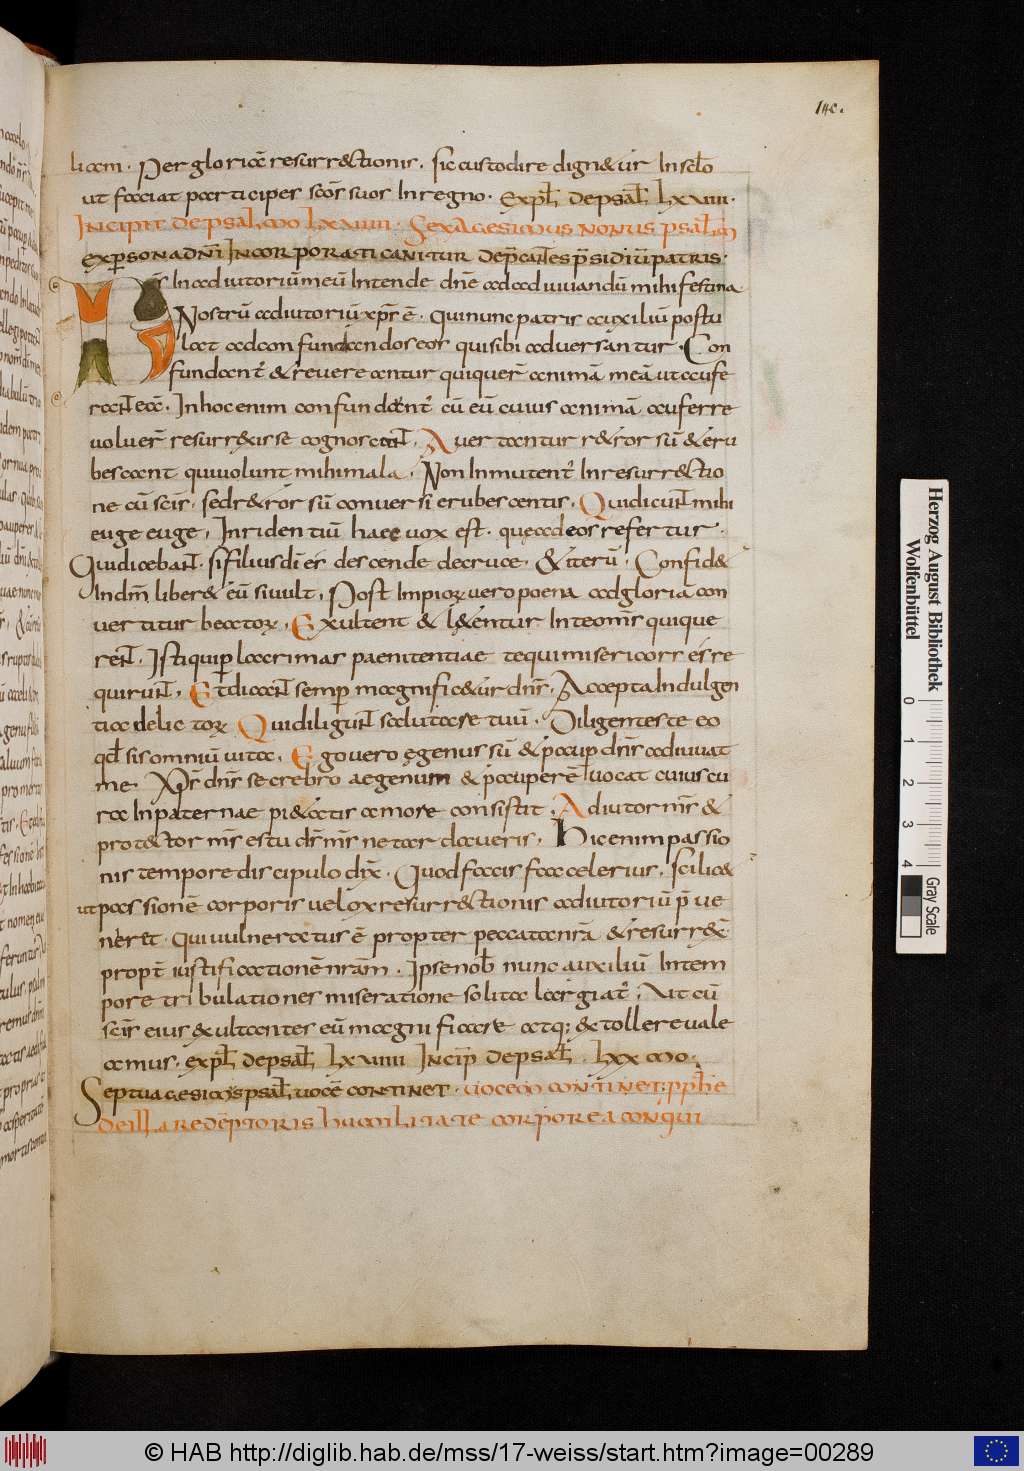 142.
liam. Per gloriā resurrectionis. sic custodire dignet̄ur In scło
ut faciat participes scōs suos In regno. Expł depsał LXVIIII.
Incipit de psalmo LXVIIII. Sexagesimus nonus psalm
ex persona dn̄i Incorporati canitur dep̄cantes p̄sidiū patris.
DS In adiutoriū meū Intende dn̄e ad adiuuandū mihi festina
Nostrū adiutoriū xp̄s ē. qui nunc patris auxiliū postu
lat ad confundendos eos qui sibi aduersantur. Con
fundant̄ & reuereantur qui quer̄ animā meā ut aufe
rant eā. In hoc enim confundant̄ cū eū cuius animā auferre
uoluer̄ resurrexisse cognoscant. Auertantur retrorsū & eru
bescant qui uolunt mihi mala. Non Inmutent̄ In resurrectio
ne cū scīs. sed retrorsū conuersi erubescentis. Qui dicunt mihi
euge euge, Inridentiū haec uox est. quę ad eos refertur.
Qui dicebant. si filius dī es descende de cruce. & iterū. Confid&
In dn̄m liber& eū si uult, Post Impiorum uero poena ad gloriā con
uertitur beatorum. Exultent & lętentur In te om̄s qui que
runt. Isti qui per lacrimas paenitentiae te qui misericors es re
quirunt. Et dicant semper magnificetur dn̄s. Accepta Indulgen
tia delictorum Qui diligunt salutare tuū. Diligentes te eo
qđ sis omniū uita. Ego uero egenus sū & pauper dn̄s adiuuat
me. Xp̄s dn̄s se crebro aegenum & pauperē uocat cuius cu
ra In paternae pietatis amore consistit. Adiutor m̄s &
protector m̄s es tu ds̄ m̄s ne tardaueris. Hic enim passio
nis tempore discipulo dix̄. Quod facis fac celerius. scilic&
ut passionē corporis uelox resurrectionis adiutoriū p̄ue
neret. Qui uulneratus ē propter peccata nr̄a & resurrex̄
propt̄ iustificationē nr̄am. Ipse nob̄ nunc auxiliū Intem
pore tribulationes miseratione solita largiat̄. Ut cū
scīs eius exultantes eū magnificare atq; extollere uale
amus. expł depsał LXVIIII Incip̄ depsał. LXX mo.
Septuagesimus psał uocē continet. uocem continet pp̄h̄e
de illa redēptoris humilitate corporea conqui
Herzog August Bibliothek
Wolfenbüttel
0 1 2 3 4
Gray Scale
© HAB http://diglib.hab.de/mss/17-weiss/start.htm?image=00289